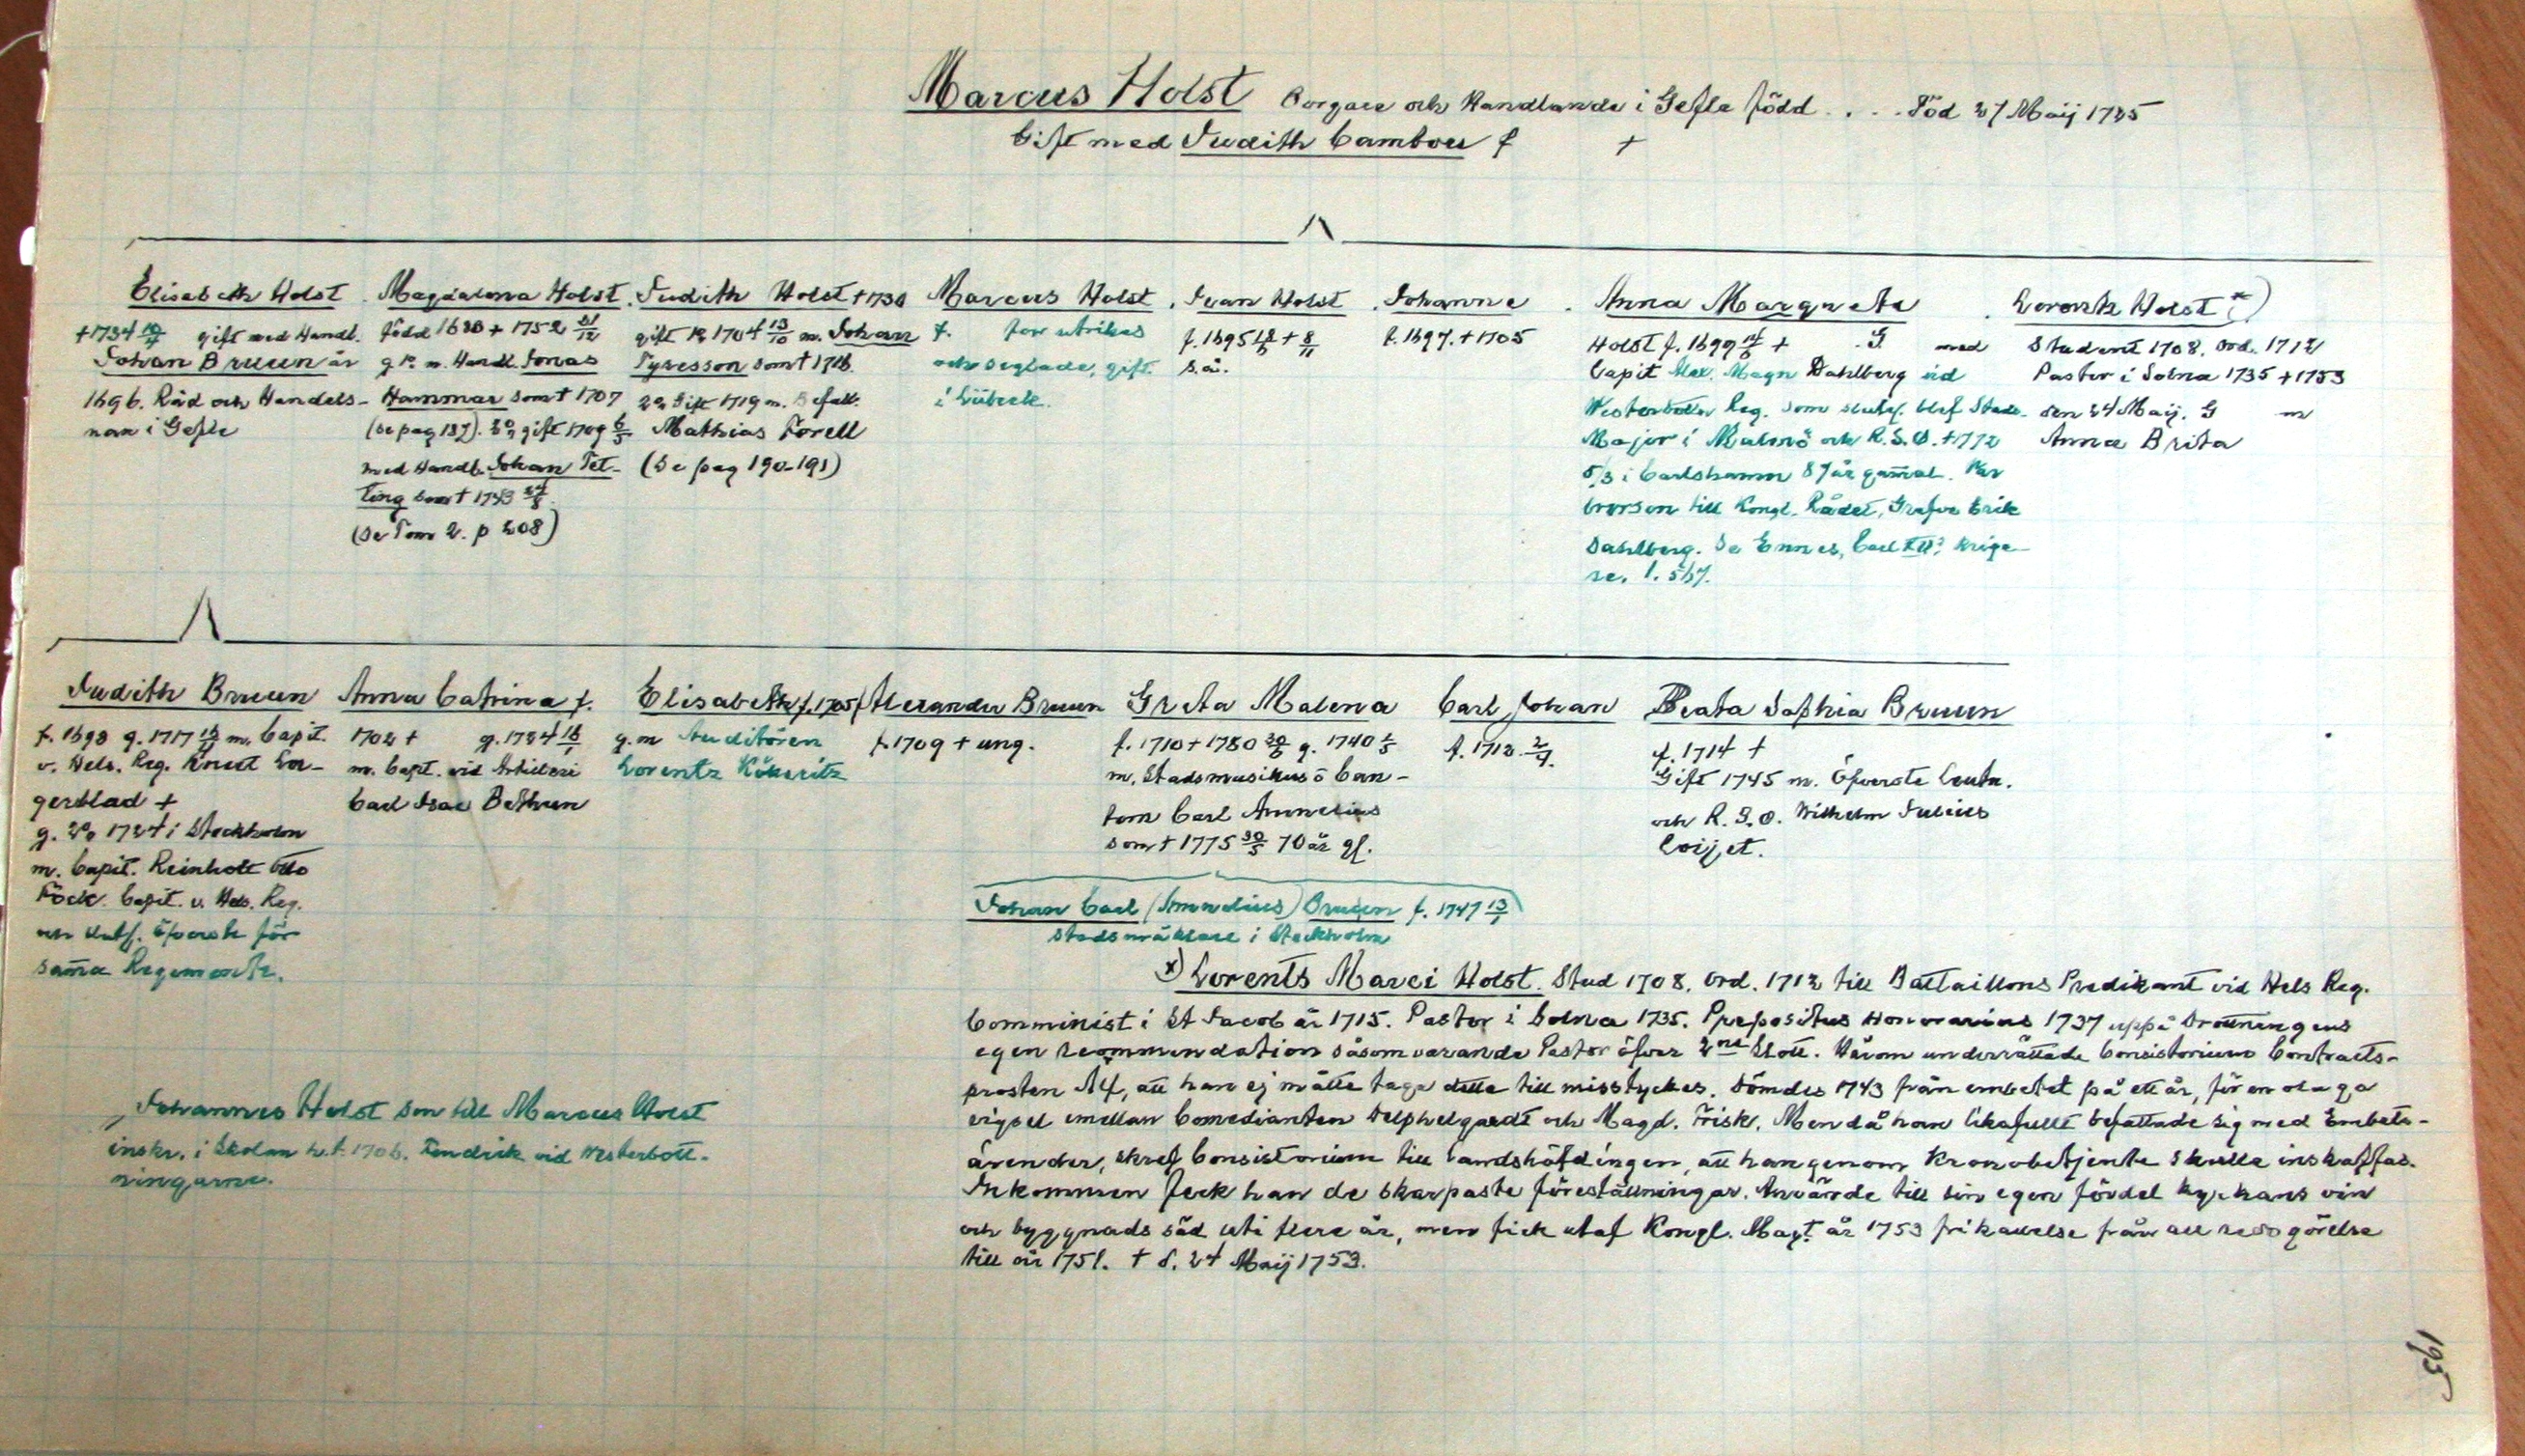 Marcus Holst Borgare och Handlande i Gefle född . . . . Död 27 Maij 1725
Gift med Judith Cambou f +
Elisabeth Holst
+1734 gift med Handl.
Johan Bruun år
1696. Råd och Handels-
man i Gefle
Magdalena Holst.
född 1680 + 1752 21/12
g 1o m. Handl. Jonas
Hammar som + 1707
(se pag 187). 2o gift 1709 6/5
med Handl. Johan Tet-
ting som + 1743 24/8
(Se Tom 2. p 208)
Judith Holst +1730
gift 1o 1704 13/10 m. Johan
Tyresson som + 1718.
2o Gift 1719 m. Befall.
Mathias Forell
(Se pag 190-191)
Marcus Holst
f. for utrikes
och seglade, gift.
i Lübeck.
Ivan Holst
f. 1695 + 8/11
s.å.
Johanne
f. 1697. + 1705
Anna Margreta
Holst f. 1699 + G med
Capit Alex. Magn Dahlberg vid
Westerbottn Reg. som slutl. blef Stads-
Major i Malmö och R.S.O. +1772
5/3 i Carlshamn 87 år gammal. Var
brorson till Kongl. Rådet, Grefve Erik
Dahlberg. Se Ennes, Carl XII: krige-
re. 1. 567.
Lorentz Holst *)
Student 1708. ord. 1712
Pastor i Solna 1735 + 1753
den 24 Maij. G m
Anna Brita
Judith Bruun
f. 1698 g. 1717 m. Capit.
v. Hels. Reg. Knut La-
gerblad +
g. 2o 1724 i Stockholm
m. Capit. Reinholt Otto
Föck. Capit. v. Hels. Reg.
och slutl. öfverste för
samma Regemente.
Anna Catrina f.
1702 + g. 1724
m. Capt. vid Artilleri
Carl Isac Bethun
Elisabeth f. 1705
g. m Auditören
Lorentz Kökeritz
Alexander Bruun
f. 1709 + ung.
Greta Malena
f. 1710 + 1780 g. 1740
m. Stadsmusikus o Can-
tom Carl Amnelius
som + 1775 30/5 70 år gl.
Carl Johan
f. 1712.
Beata Sophia Bruun
f. 1714 +
Gift 1745 m. Öfverste Leutn.
och R. S. O. Wilhelm Julius
Coijet.
Johan Carl (Amnelius) Bruun f. 1747 13/1
Stadsmäklare i Stockholm
*) Lorents Marci Holst. Stud 1708. Ord. 1712 till Battaillons Predikant vid Hels Reg.
Comminist i St Jacob år 1715. Pastor i Solna 1735. Præpositus Honorarius 1737 uppå Drottningens
egen recommendation såsom varande Pastor öfver 2ne Slott. Härom underrättade Consistorium Contracts-
prosten att han ej måtte taga detta till misstyckes. Dömdes 1743 från embetet på ett år, för en olaga
vigsel emellan Comedianten Delphelgardt och Magd. Frisk. Men då han likafullt befattade sig med Embets-
ärender, skref Consistorium till Landshöfdingen, att han genom Kronobetjente skulle inskaffas.
Inkommen feck han de skarpaste föreställningar. Använde till sin egen fördel kyrkans vin
och byggnads säd uti flere år, men fick utaf Kongl. Majt. år 1753 frikallelse från all redogörelse
till år 1751. + d. 24 Maij 1753.
Johannes Holst son till Marcus Holst
inskr. i Skolan h.t. 1706. Fendrik vid Westerbott-
ningarne.
195